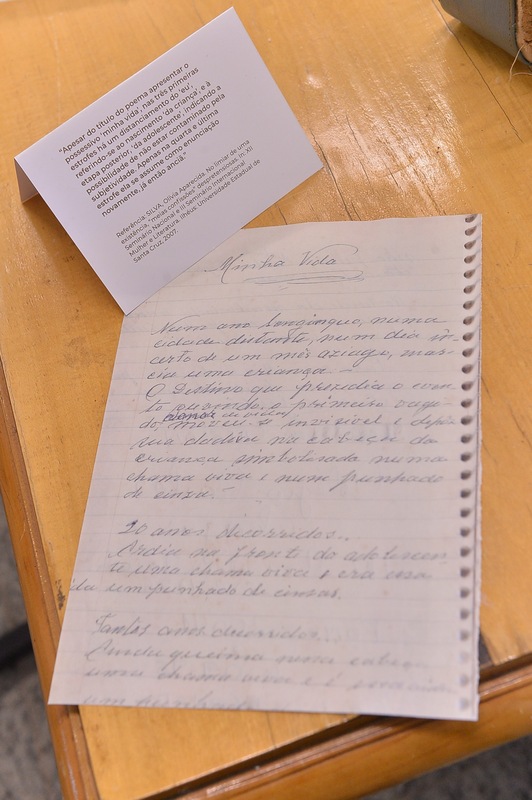 "Apesar do título do poema apresentar o
possessivo 'minha vida', nas três primeiras
estrofes há um distanciamento do 'eu',
referindo-se ao nascimento da 'criança', e à
etapa posterior, 'da adolescente', indicando a
possibilidade de não estar contaminado pela
subjetividade. Apenas na quarta e última
estrofe ela se assume como enunciação
novamente, já então anciã."
Referência: SILVA, Olívia Aparecida. No limiar de uma
existência, "meias confissões" despretensiosas. In: XII
Seminário Nacional e III Seminário Internacional
Mulher e Literatura. Ilhéus: Universidade Estadual de
Santa Cruz, 2007.
Minha Vida
Num ano longínquo, numa
cidade distante, num dia in-
certo de um mês aziago, nas-
cia uma criança –
O Destino que presidia o even-
to ouvindo o primeiro vagi-
do moveu-se invisível e
sua dadiva na cabeça da
criança simbolizada numa
chama viva e num punhado
de cinza. –
20 anos decorridos...
Ardia na fronte do adolescen-
te uma chama viva e era
um punhado de cinzas.
Tantos anos decorridos...
Ainda queima
uma chama viva e é
um punhado